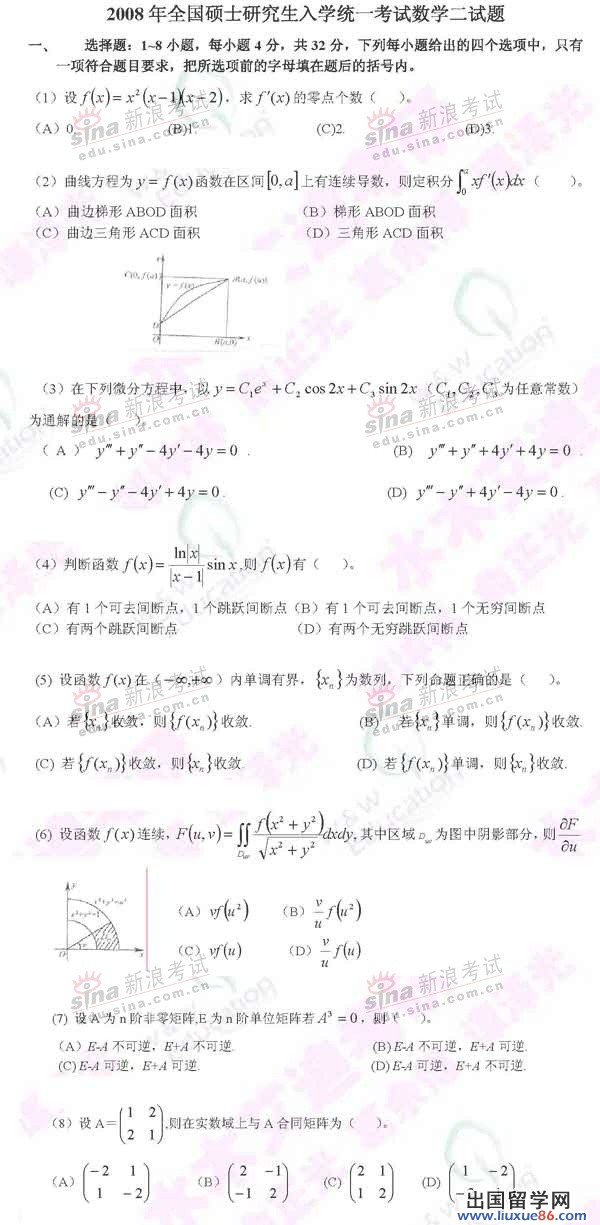 2008 年全国硕士研究生入学统一考试数学二试题
一、 选择题：1~8 小题，每小题 4 分，共 32 分，下列每小题给出的四个选项中，只有
一项符合题目要求，把所选项前的字母填在题后的括号内。
（1）设 f(x)=x²(x−1)(x−2)，求 f′(x) 的零点个数（ ）。
（A）0. (B)1. (C)2. (D)3.
（2）曲线方程为 y = f(x) 函数在区间 [0,a] 上有连续导数，则定积分 ∫₀ᵃ xf′(x)dx（ ）。
（A）曲边梯形 ABOD 面积 （B）梯形 ABOD 面积
（C）曲边三角形 ACD 面积 （D）三角形 ACD 面积
C(0, f(a)) A(a, f(a))
y = f(x)
D
O B(a,0) x
（3）在下列微分方程中，以 y = C₁eˣ + C₂ cos 2x + C₃ sin 2x（C₁, C₂, C₃ 为任意常数）
为通解的是（ ）。
（A） y‴ + y″ − 4y′ − 4y = 0 . (B) y‴ + y″ + 4y′ + 4y = 0 .
(C) y‴ − y″ − 4y′ + 4y = 0 . (D) y‴ − y″ + 4y′ − 4y = 0 .
（4）判断函数 f(x) = ln|x| / |x−1| sin x ,则 f(x) 有（ ）。
（A）有 1 个可去间断点，1 个跳跃间断点（B）有 1 个可去间断点，1 个无穷间断点
（C）有两个跳跃间断点 （D）有两个无穷跳跃间断点
（5）设函数 f(x) 在（−∞,+∞）内单调有界，{xₙ} 为数列，下列命题正确的是（ ）。
（A）若{xₙ}收敛，则{f(xₙ)}收敛. （B） 若{xₙ}单调，则{f(xₙ)}收敛.
(C) 若{f(xₙ)}收敛，则{xₙ}收敛. (D) 若{f(xₙ)}单调，则{xₙ}收敛.
(6) 设函数 f(x) 连续, F(u,v) = ∬_{D_{uv}} f(x²+y²)/√(x²+y²) dxdy, 其中区域 D_{uv} 为图中阴影部分，则 ∂F/∂u
y
x²+y²=u²
x²+y²=1
O v x
（A）vf(u²) （B）v/u f(u²)
（C）vf(u) （D）v/u f(u)
(7) 设 A 为 n 阶非零矩阵,E 为 n 阶单位矩阵若 A³ = 0，则（ ）。
（A）E-A 不可逆，E+A 不可逆. (B) E-A 不可逆，E+A 可逆.
(C) E-A 可逆，E+A 可逆. (D) E-A 可逆，E+A 不可逆.
（8）设 A＝(1 2; 2 1),则在实数域上与 A 合同矩阵为（ ）。
（A）(−2 1; 1 −2) （B）(2 −1; −1 2) (C) (2 1; 1 2) (D) (1 −2; −2 1)
sina 新浪考试
edu.sina.com.cn
出国留学网
www.liuxue86.com